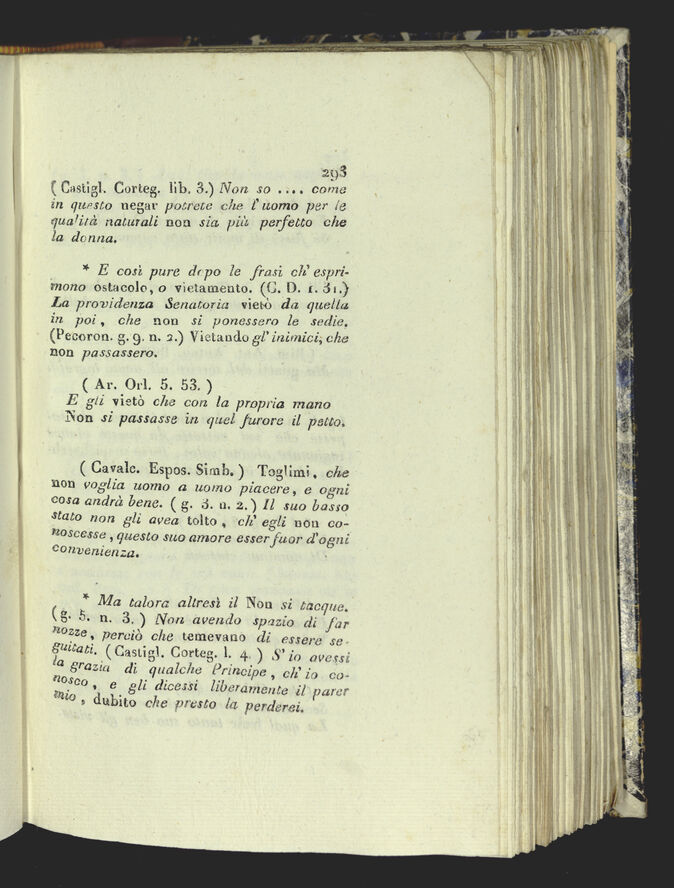 293
(Castigl. Corteg. lib. 3.) Non so .... come
in questo negar potrete che l'uomo per le
qualità naturali non sia più perfetto che
la donna.
* E così pure dopo le frasi ch' espri-
mono ostacolo, o vietamento. (G. D. 1. 31.)
La providenza Senatoria vietò da quella
in poi, che non si ponessero le sedie.
(Pecoron. g. 9. n. 2.) Vietando gl' inimici, che
non passassero.
( Ar. Orl. 5. 53. )
E gli vietò che con la propria mano
Non si passasse in quel furore il petto.
( Cavalc. Espos. Simb. ) Toglimi, che
non voglia uomo a uomo piacere, e ogni
cosa andrà bene. ( g. 3. n. 2. ) Il suo basso
stato non gli avea tolto, ch' egli non co-
noscesse, questo suo amore esser fuor d'ogni
convenienza.
* Ma talora altresì il Non si tacque.
(g. 5. n. 3. ) Non avendo spazio di far
nozze, perciò che temevano di essere se-
guitati. (Castigl. Corteg. l. 4. ) S' io avessi
la grazia di qualche Principe, ch' io co-
nosco, e gli dicessi liberamente il parer
mio, dubito che presto la perderei.